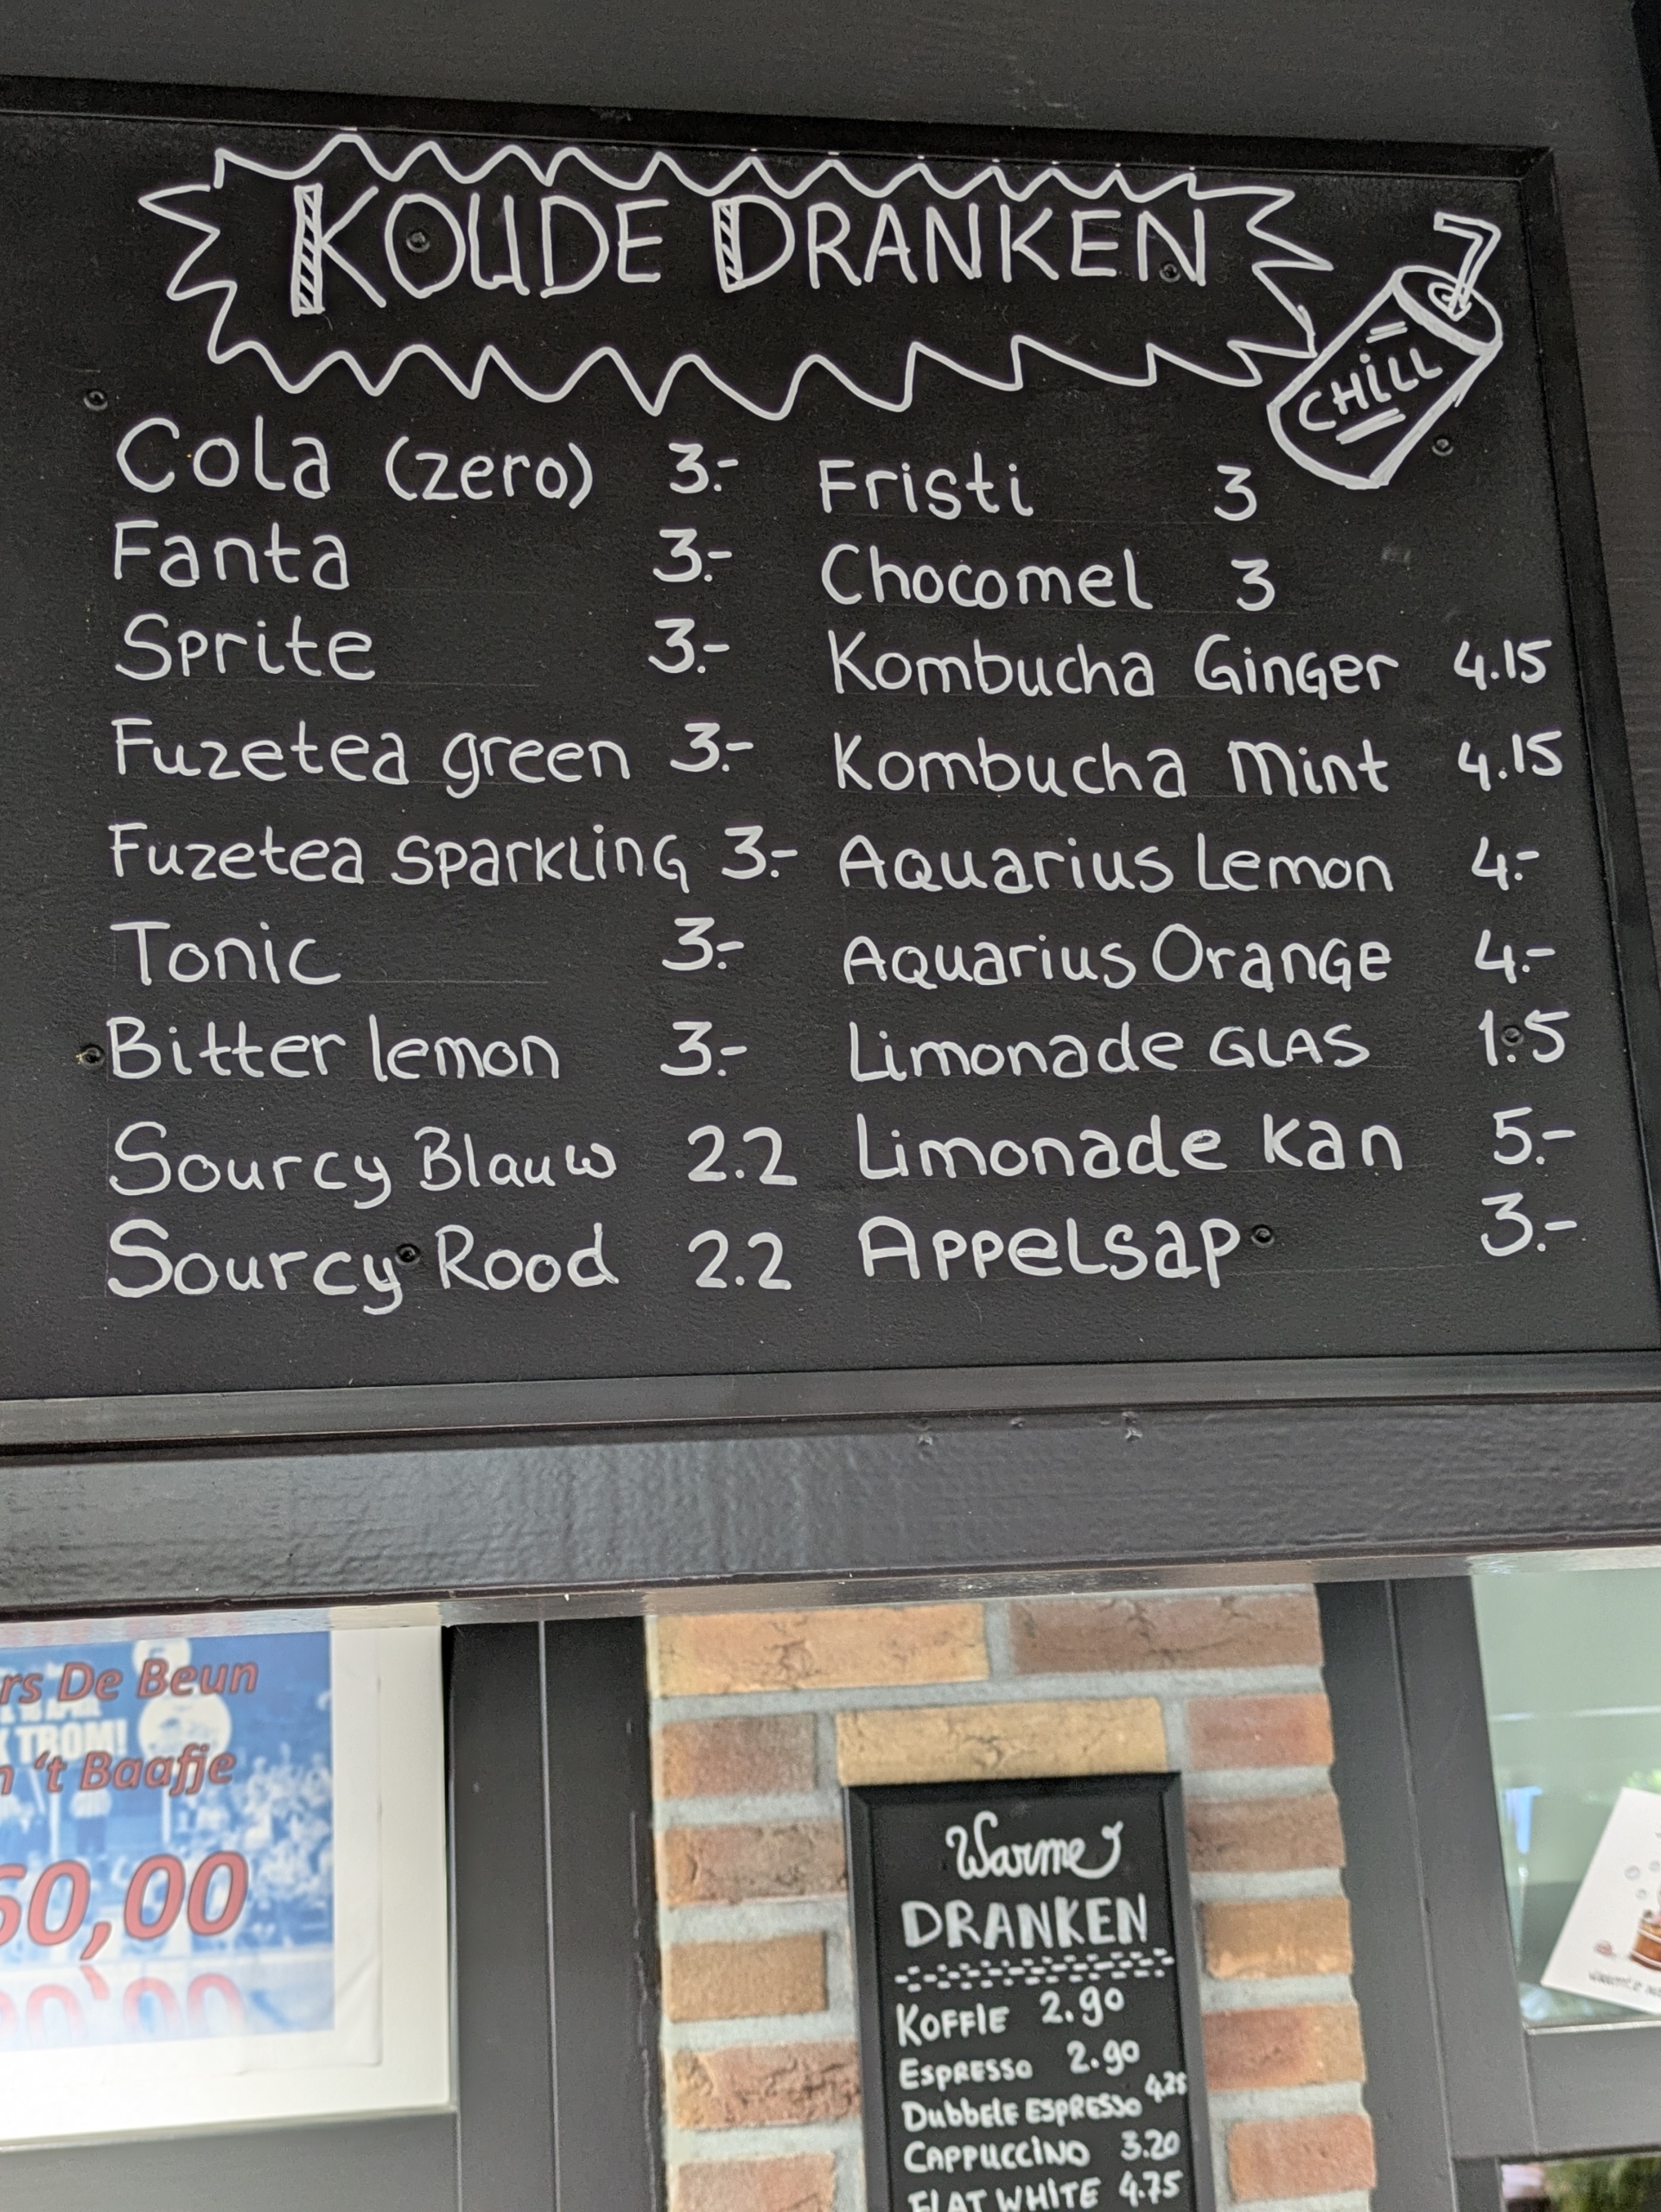 KOUDE DRANKEN
CHILL
Cola (zero) 3.-
Fanta 3.-
Sprite 3.-
Fuzetea green 3.-
Fuzetea sparkling 3.-
Tonic 3.-
Bitter lemon 3.-
Sourcy Blauw 2.2
Sourcy Rood 2.2
Fristi 3
Chocomel 3
Kombucha Ginger 4.15
Kombucha mint 4.15
Aquarius Lemon 4.-
Aquarius Orange 4.-
Limonade GLAS 1.5
Limonade kan 5.-
Appelsap 3.-
rs De Beun
TROM!
n 't Baafje
60,00
Warme
DRANKEN
KOFFIE 2.90
ESPRESSO 2.90
DUBBELE ESPRESSO 4.25
CAPPUCCINO 3.20
FLAT WHITE 4.75